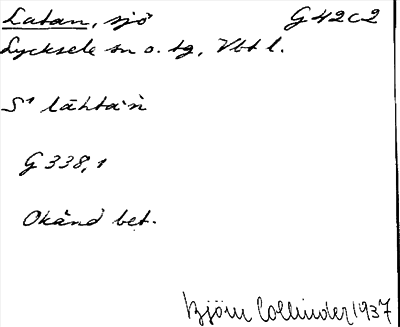 Latan, sjö G42c2
Lycksele sn o. tg, Vbt l.
S¹ lāhta'ǹ
G 338,1
Okänd bet.
Björn Collinder 1937